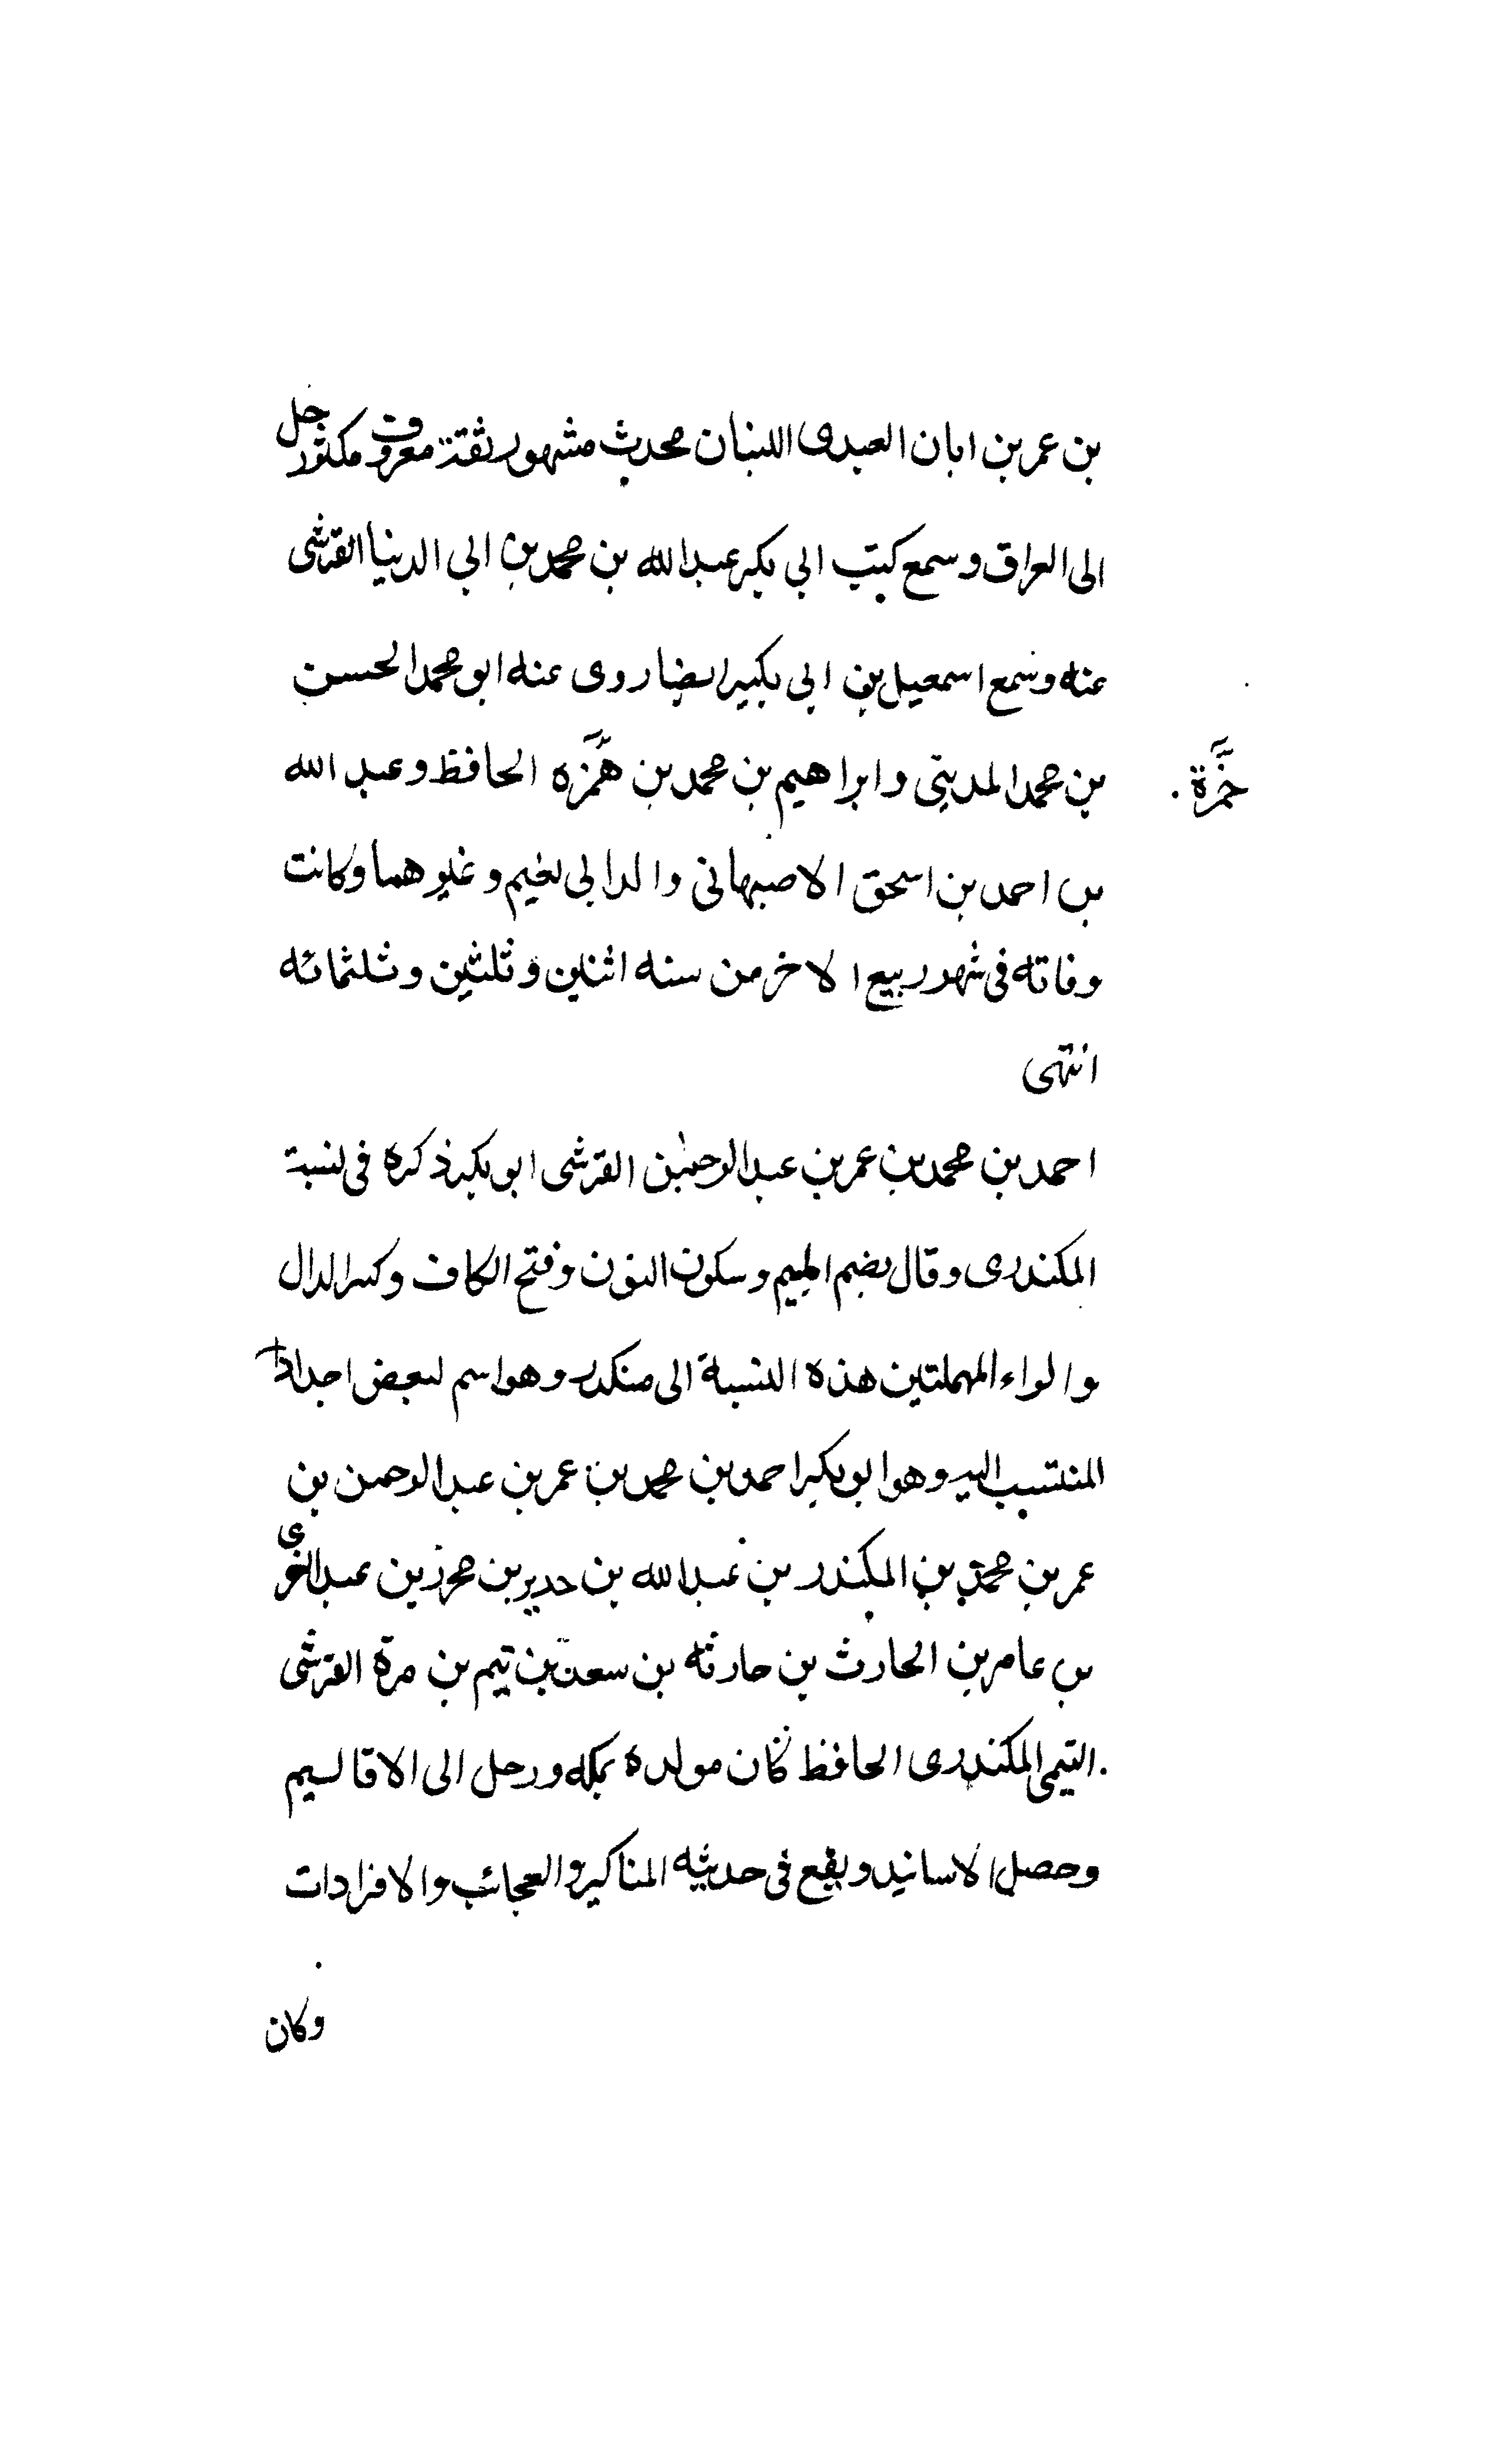 بن عمر بن ابان العبدى اللنبان محدث مشهور ثقة معروف مكثور حل
الى العراق وسمع كتب ابى بكر عبد الله بن محمد بن ابى الدنيا القرشى
عنه وسمع اسمعيل بن ابى بكير ايضا روى عنه ابو محمد الحسن
بن محمد المدينى وابراهيم بن محمد بن همزه الحافظ وعبد الله
حمزة
بن احمد بن اسحق الاصبهانى والد ابى نعيم وغيرهما وكانت
وفاته فى شهر ربيع الاخر من سنه اثنين وثلثين وثلثمائه
انتهى
احمد بن محمد بن عمر بن عبد الرحمن القرشى ابو بكر ذكره فى نسبة
المكندرى وقال بضم الميم وسكون النون وفتح الكاف وكسر الدال
والراء المهملتين هذه النسبة الى منكدر وهو اسم لبعض اجداد
المنتسب اليه وهو ابو بكر احمد بن محمد بن عمر بن عبد الرحمن بن
عمر بن محمد بن المكندر بن عبد الله بن حدير بن محرز بن عبد العزى
بن عامر بن الحارث بن حارثه بن سعد بن تيم بن مرة القرشى
التيمى المكندرى الحافظ كان مولده بمكه ورحل الى الاقاليم
وحصل الاسانيد ويقع فى حديثه المناكير والعجائب والافرادات
وكان